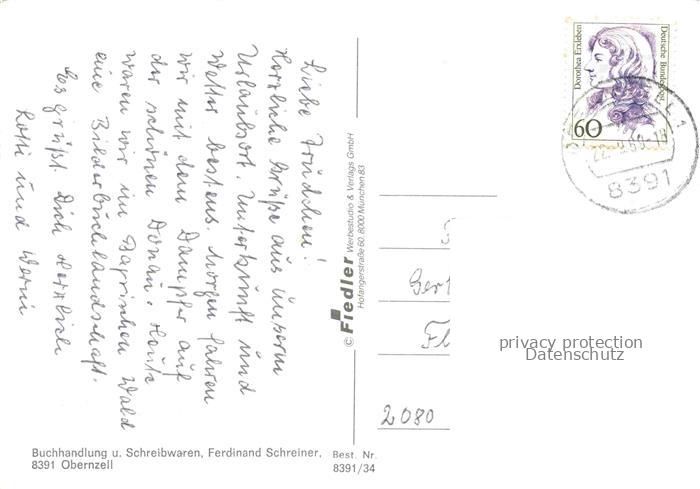 Liebe Trüdchen!
Herzliche Grüße aus unserm
Urlaubsort. Unterkunft und
Wetter bestens. Morgen fahren
wir mit dem Dampfer auf
der schönen Donau. Heute
waren wir im Bayrischen Wald
eine Bilderbuchlandschaft.
Es grüßt Dich herzlich
Lotti und Werni
Buchhandlung u. Schreibwaren, Ferdinand Schreiner,
8391 Obernzell
Best. Nr.
8391/34
© Fiedler Werbestudio & Verlags GmbH
Hofangerstraße 60, 8000 München 83
Dorothea Erxleben
Deutsche Bundespost
60
8391
Gert
Fl
2080
privacy protection
Datenschutz